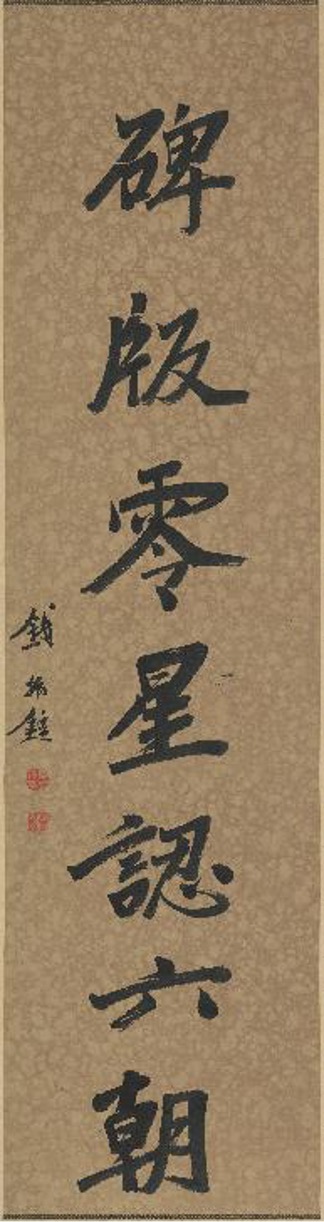 碑版零星認六朝
錢振鍠